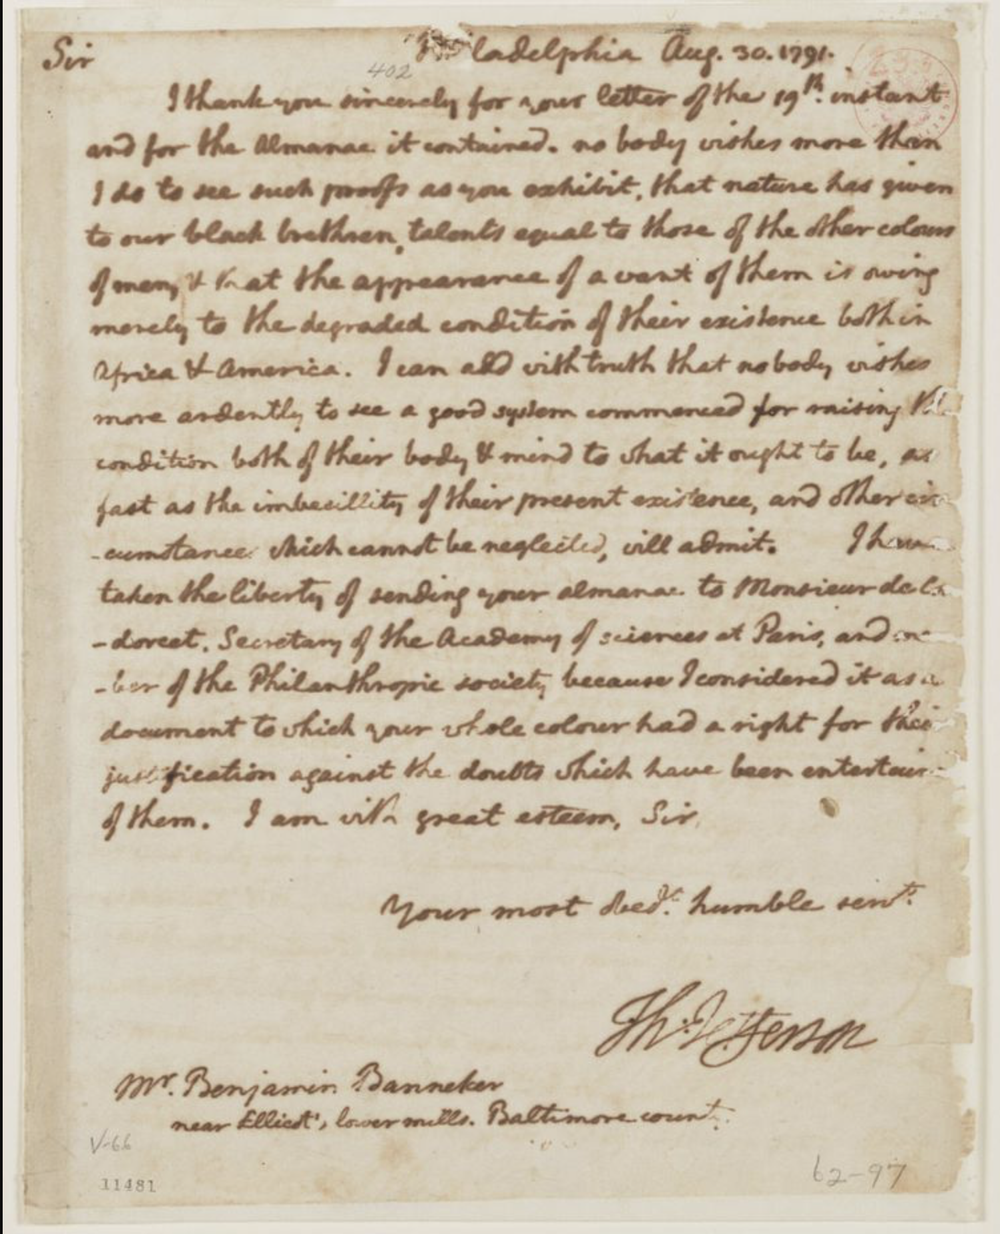 Sir Philadelphia Aug. 30. 1791.
402
I thank you sincerely for your letter of the 19th. instant
and for the Almanac it contained. no body wishes more than
I do to see such proofs as you exhibit, that nature has given
to our black brethren, talents equal to those of the other colours
of men, & that the appearance of a want of them is owing
merely to the degraded condition of their existence both in
Africa & America. I can add with truth that no body wishes
more ardently to see a good system commenced for raising the
condition both of their body & mind to what it ought to be, as
fast as the imbecillity of their present existence, and other cir
-cumstance which cannot be neglected, will admit. I have
taken the liberty of sending your almanac to Monsieur de Co
-dorcet, Secretary of the Academy of sciences at Paris, and me
-ber of the Philanthropic society because I considered it as a
document to which your whole colour had a right for their
justification against the doubts which have been entertain
of them. I am with great esteem, Sir,
Your most obedt. humble servt.
Th: Jefferson
Mr. Benjamin Banneker
near Ellicot's lower mills. Baltimore county.
V-66
11481
62-97